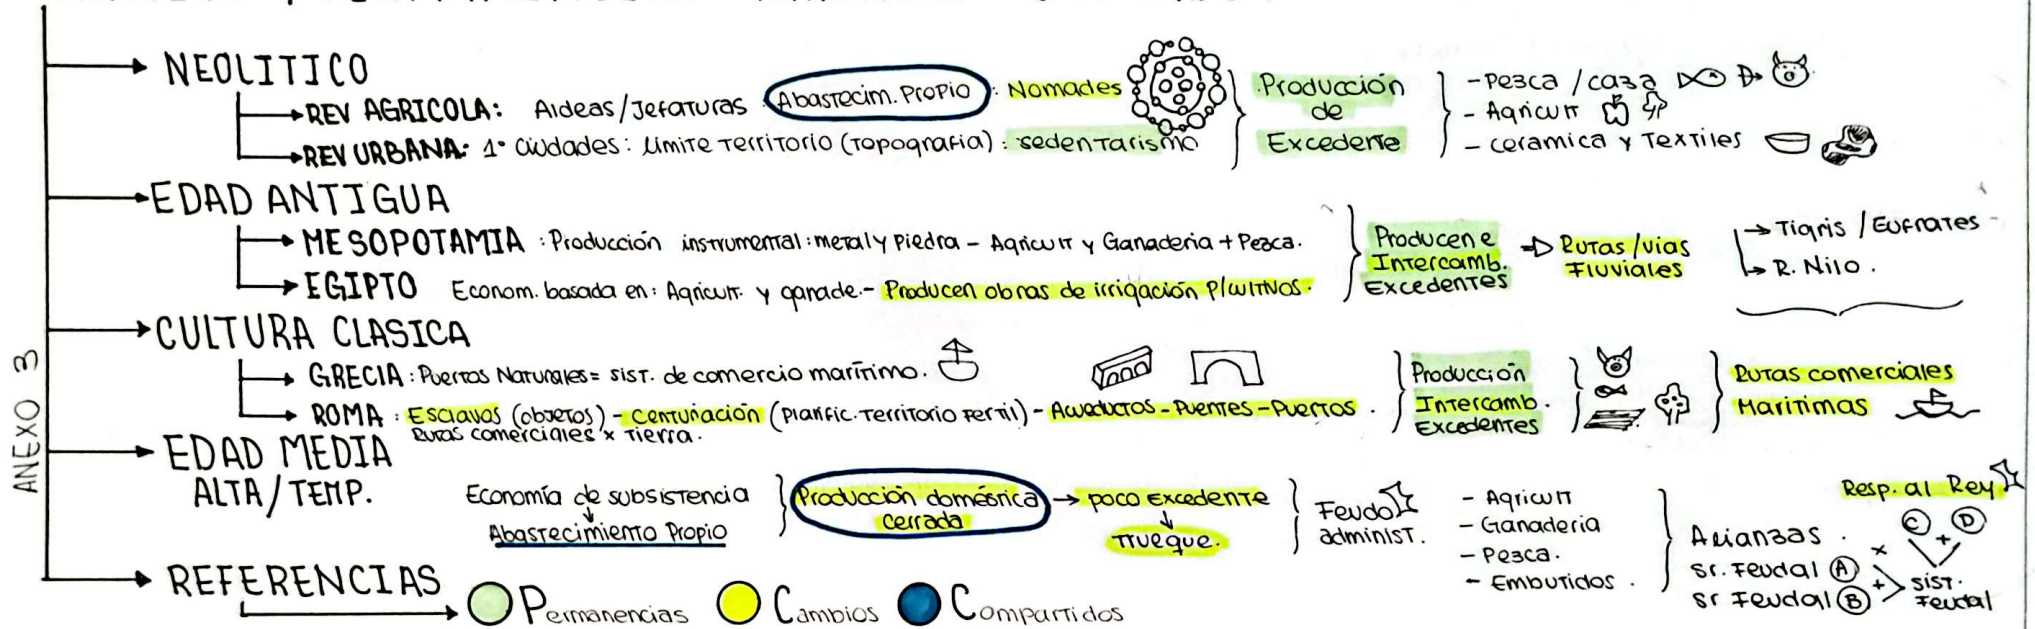 NEOLITICO
REV AGRICOLA: Aldeas/Jefaturas: Abastecim. Propio: Nomades
REV URBANA: 1° Ciudades: Límite Territorio (Topografia): sedentarismo
Producción
de
Excedente
- Pesca / caza
- Agricult
- ceramica y Textiles
EDAD ANTIGUA
MESOPOTAMIA: Producción instrumental: metal y piedra - Agricult y Ganaderia + Pesca.
EGIPTO Econom. basada en: Agricult. y ganade.- Producen obras de irrigación p/cultivos.
Producen e
Intercamb.
Excedentes
Rutas/vias
Fluviales
Tigris / Eufrates
R. Nilo.
CULTURA CLASICA
GRECIA: Puertos Naturales = sist. de comercio marítimo.
ROMA: Esclavos (objetos) - Centuriación (Planific. Territorio Fertil) - Acueductos - Puentes - Puertos.
Rutas comerciales x Tierra.
Producción
Intercamb.
Excedentes
Rutas comerciales
Maritimas
ANEXO 3
EDAD MEDIA
ALTA/TEMP.
Economía de subsistencia
Abastecimiento Propio
Producción doméstica
cerrada
poco Excedente
Trueque.
Feudo
administ.
- Agricult
- Ganaderia
- Pesca.
- Embutidos.
Alianzas.
Sr. Feudal A
Sr Feudal B
Resp. al Rey
C + D
sist.
Feudal
REFERENCIAS
Permanencias Cambios Compartidos